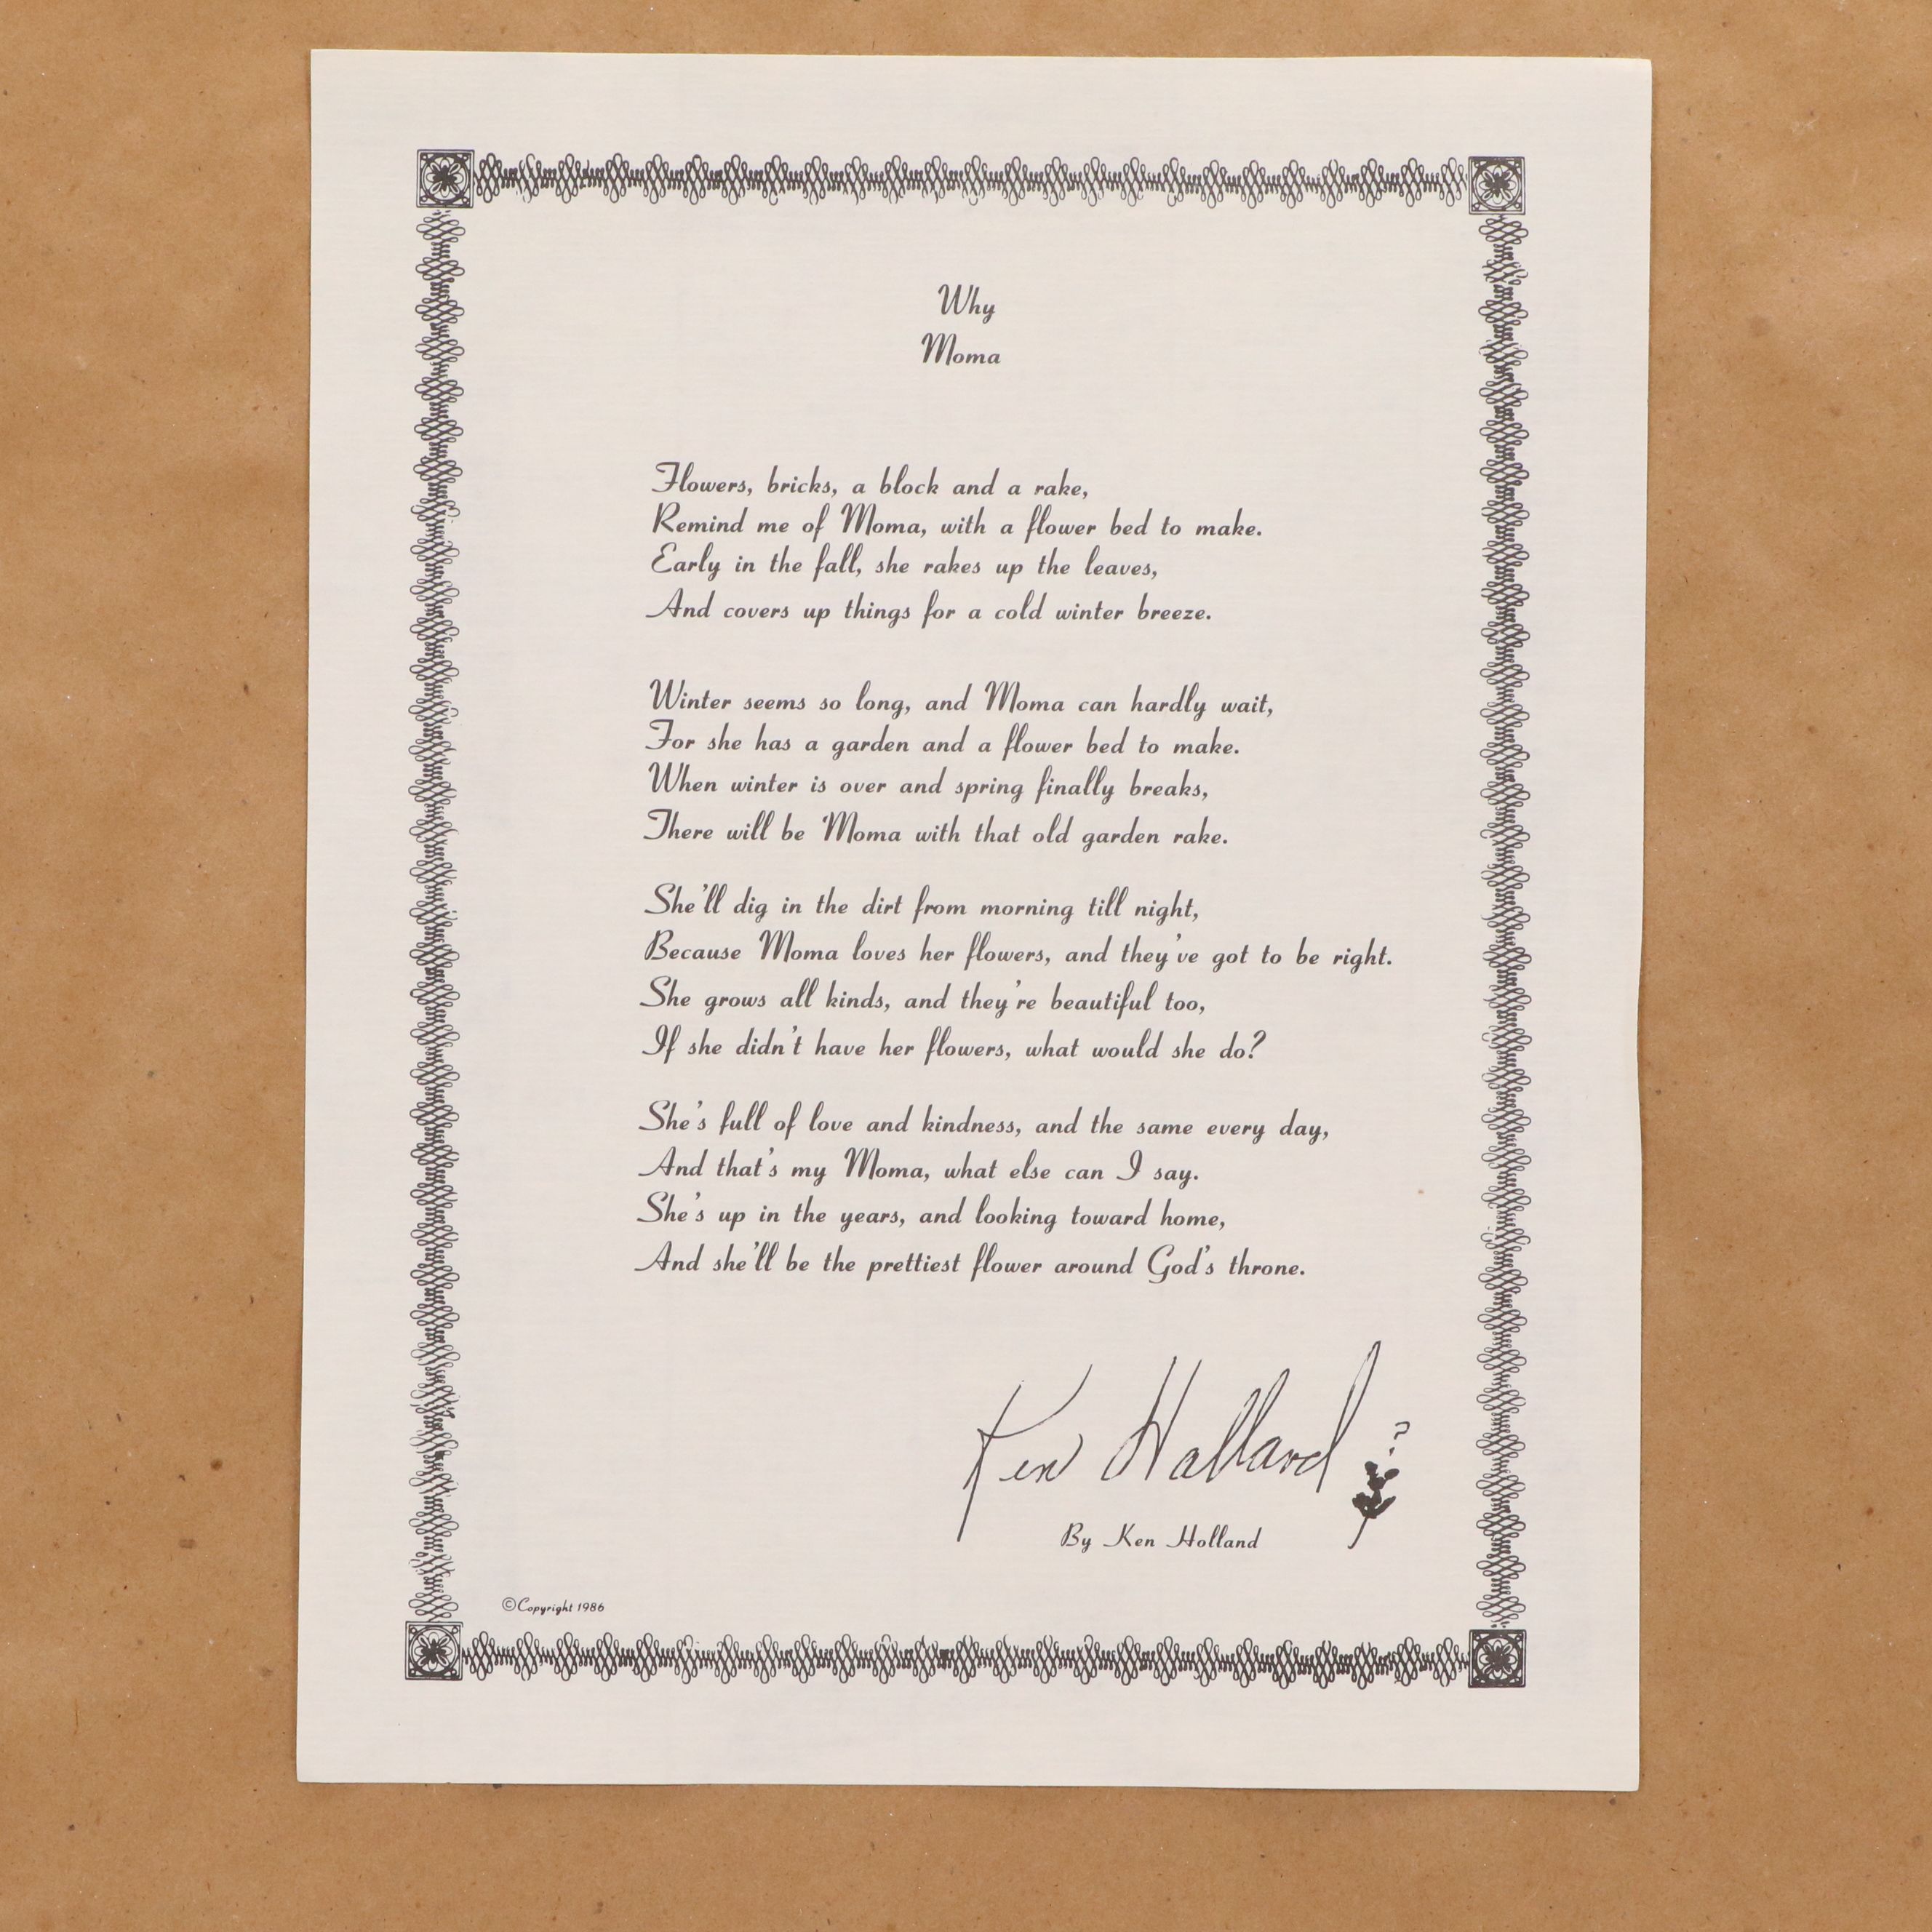 Why
Moma
Flowers, bricks, a block and a rake,
Remind me of Moma, with a flower bed to make.
Early in the fall, she rakes up the leaves,
And covers up things for a cold winter breeze.
Winter seems so long, and Moma can hardly wait,
For she has a garden and a flower bed to make.
When winter is over and spring finally breaks,
There will be Moma with that old garden rake.
She'll dig in the dirt from morning till night,
Because Moma loves her flowers, and they've got to be right.
She grows all kinds, and they're beautiful too,
If she didn't have her flowers, what would she do?
She's full of love and kindness, and the same every day,
And that's my Moma, what else can I say.
She's up in the years, and looking toward home,
And she'll be the prettiest flower around God's throne.
Ken Holland ?
By Ken Holland
©Copyright 1986